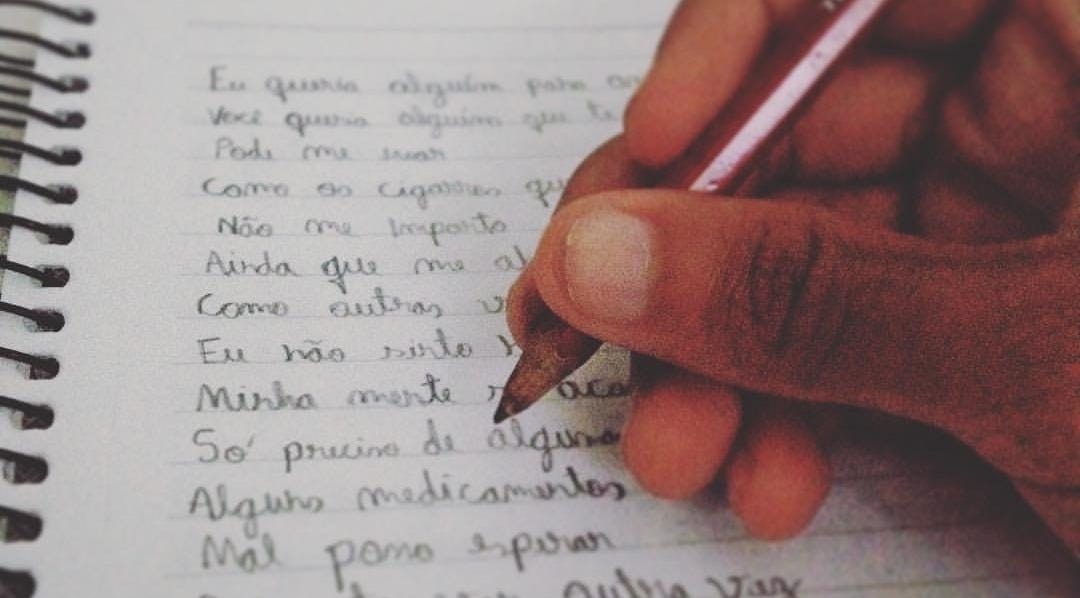 Eu queria alguém para
Você queria alguém que te
Pode me usar
Como os cigarros
Não me importo
Ainda que me
Como outras
Eu não sinto
Minha mente
Só preciso de
Alguns medicamentos
Mal posso esperar
outra vez